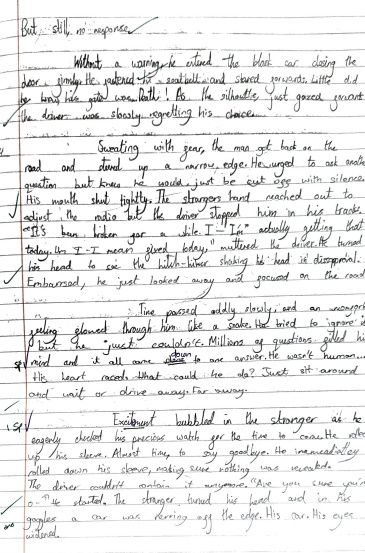 But, still no response.
Without a warning he entered the black car closing the
door firmly. He fastened his seatbelt and stared forwards. Little did
he know his fate was Death! As the silhoutte, just gazed forward
the driver was slowly regretting his choice...
Sweating with fear, the man got back on the
road and drove up a narrow edge. He urged to ask another
question but knew he would just be cut off with silence.
His mouth shut tightly. The strangers hand reached out to
adjust the radio but the driver stopped him in his tracks.
"It's been broken for a while. I-I'm actually getting that
today. Um I-I mean fixed today," muttered the driver. He turned
his head to see the hitch-hiker shaking his head in disapproval.
Embarrased, he just looked away and focused on the road
Time passed oddly slowly, and an uncomfort
feeling flowed through him like a snake. He tried to ignore it
but he just couldn't. Millions of questions filled his
sp mind and it all came down to one answer. He wasn't human...
His heart raced. What could he do? Just sit around
and wait or drive away. Far away.
sp Excitement bubbled in the stranger as he
eagerly checked his precious watch for the time to come. He rolled
up his sleeve. Almost time, to say goodbye. He
rolled down his sleeve, making sure nothing was revealed.
The driver couldn't contain it anymore. "Are you sure you're
o-" he started. The stranger turned his head and in his
goggles a car was veering off the edge. His car. His eyes
widened.